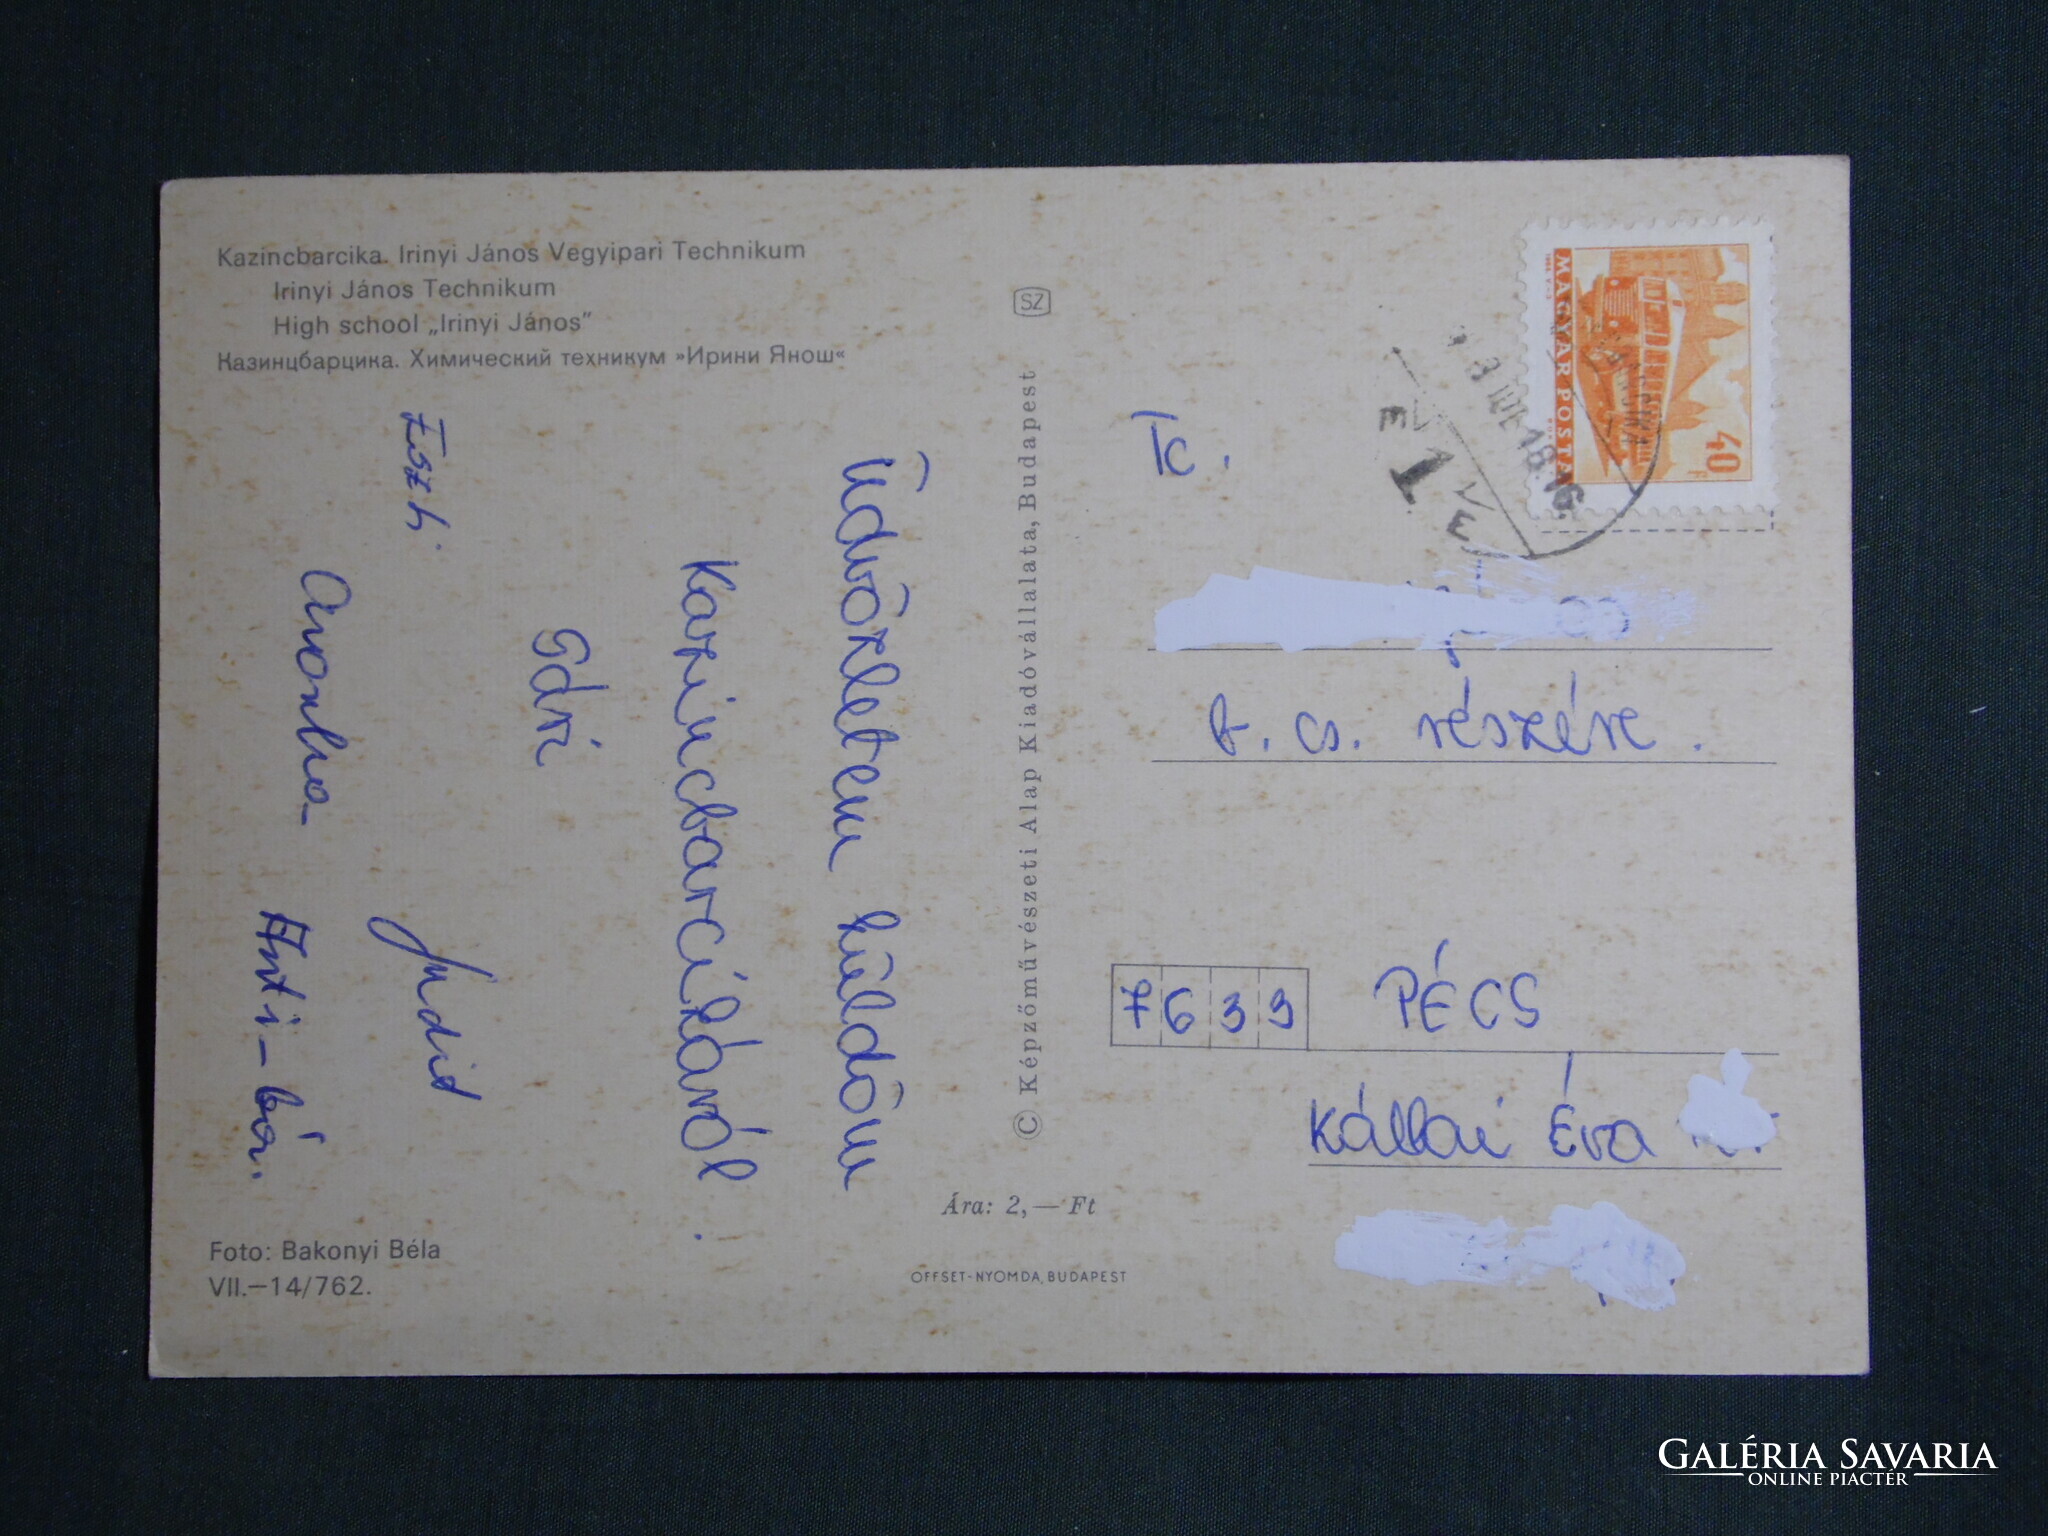 Kazincbarcika. Irinyi János Vegyipari Technikum
Irinyi János Technikum
High school „Irinyi János”
Казинцбарцика. Химический техникум »Ирини Янош«
Üdvözletem küldöm
Kazincbarcikáról.
Gári
Eszti
Judit
Aranka
Anti-bá.
Foto: Bakonyi Béla
VII.—14/762.
© Képzőművészeti Alap Kiadóvállalata, Budapest
SZ
Ára: 2,— Ft
OFFSET-NYOMDA, BUDAPEST
MAGYAR POSTA
40
b. cs. részére.
7633 PÉCS
Kállai Éva
GALÉRIA SAVARIA
ONLINE PIACTÉR